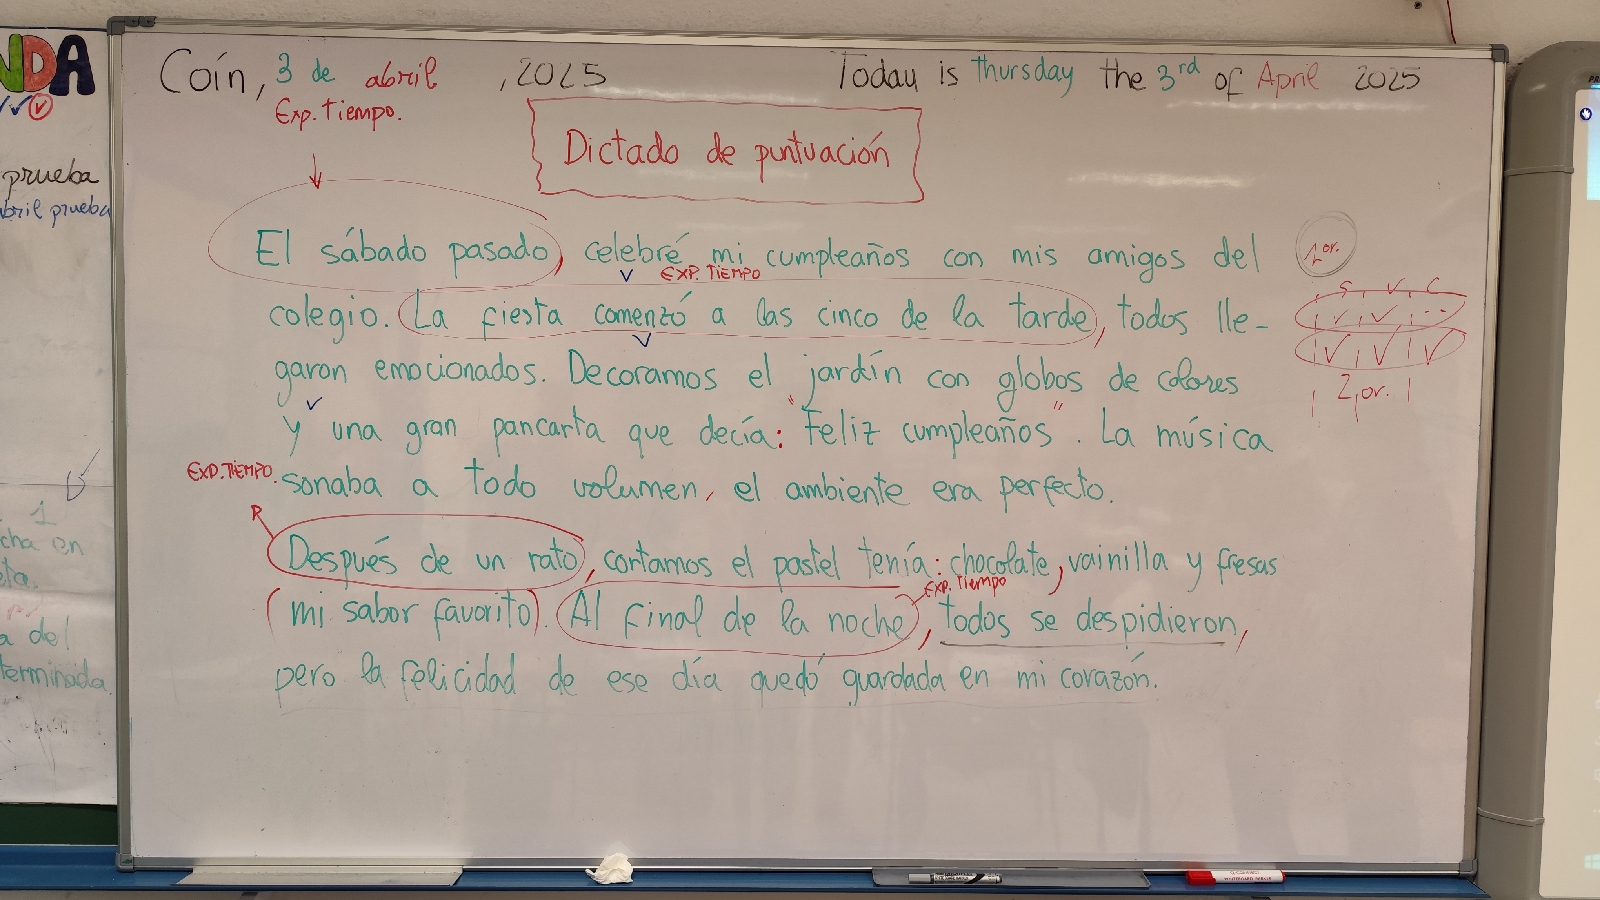 NDA
prueba
abril prueba
1
cha en
eta.
a del
terminada.
Coín, 3 de abril, 2025
Exp. Tiempo.
Today is thursday the 3rd of April 2025
Dictado de puntuación
El sábado pasado, celebré mi cumpleaños con mis amigos del
1 or.
V EXP. TIEMPO
S, V, C
colegio. La fiesta comenzó a las cinco de la tarde, todos lle-
V
garon emocionados. Decoramos el jardín con globos de colores
2 or.
V
y una gran pancarta que decía: "Feliz cumpleaños". La música
EXP. TIEMPO.
sonaba a todo volumen, el ambiente era perfecto.
R
Después de un rato, cortamos el pastel tenía: chocolate, vainilla y fresas
EXP. Tiempo
(mi sabor favorito). Al final de la noche, todos se despidieron,
pero la felicidad de ese día quedó guardada en mi corazón.